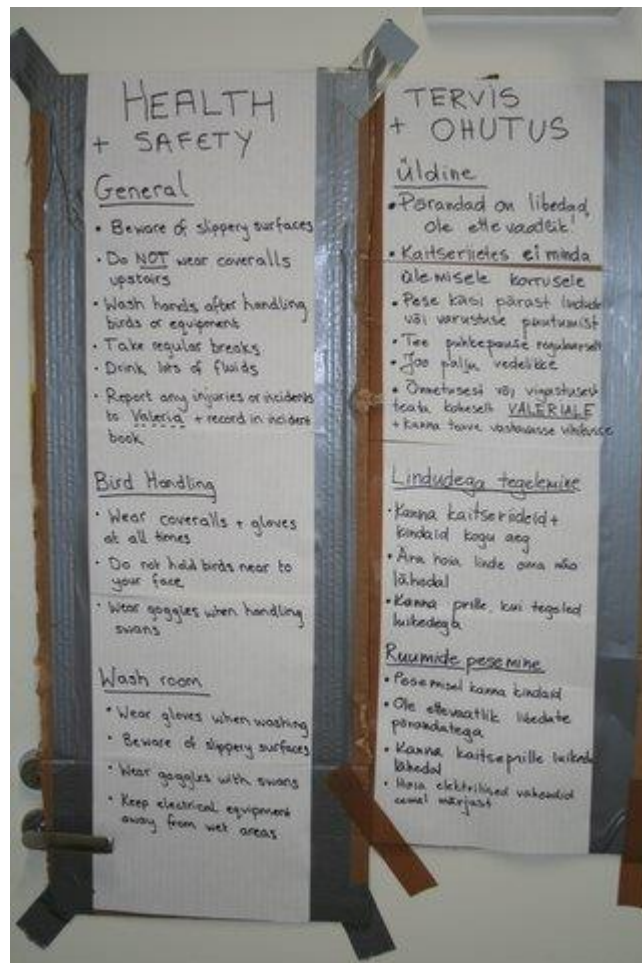 HEALTH
+ SAFETY
General
• Beware of slippery surfaces
• Do NOT wear coveralls
upstairs
• Wash hands after handling
birds or equipment
• Take regular breaks.
• Drink lots of fluids
• Report any injuries or incidents
to Valeria + record in incident
book
Bird Handling
• Wear coveralls + gloves
at all times
• Do not hold birds near to
your face
• Wear goggles when handling
swans
Wash room
• Wear gloves when washing
• Beware of slippery surfaces
• Wear goggles with swans
• Keep electrical equipment
away from wet areas
TERVIS
+ OHUTUS
Üldine
• Põrandad on libedad,
ole ettevaatlik!
• Kaitseriietes ei minda
ülemisele korrusele
• Pese käsi pärast lindude
või varustuse puutumist
• Tee puhkepause regulaarselt
• Joo palju vedelikke
• Õnnetusest või vigastusest
teata koheselt VALERIALE
+ kanna teave vastavasse
Lindudega tegelemine
• Kanna kaitseriideid +
kindaid kogu aeg
• Ära hoia linde oma näo
lähedal
• Kanna prille, kui tegeled
luikedega
Ruumide pesemine
• Pesemisel kanna kindaid
• Ole ettevaatlik libedate
põrandatega
• Kanna kaitseprille luikede
lähedal
• Hoia elektrilised vahendid
eemal märjast